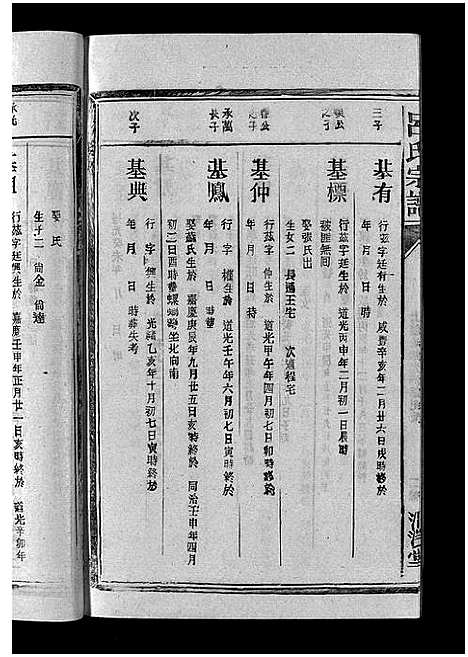 呂氏宗譜
三子
基有
行茲字廷有生於 咸豐辛亥年二月廿六日戌時終於
年 月 日 時
之子
基標
行茲字廷 生於 道光丙申年二月初一日辰時
被匪無回
娶張氏出
生女二 長適王宅 次適程宅
基仲
行茲字 仲生於 道光甲午年四月初七日卯時終於
年 月 日 時
永萬
長子
基鳳
行 字 權生於 道光壬午年六月初七日寅時終於
年 月 日 時
娶蘇氏生於 嘉慶庚辰年九月廿五日亥時終於 同治壬申年四月
初二日酉時 坐北向南
次子
基典
行 字 興生於 光緒乙亥年十月初七日寅時終於
年 月 日 時葬失考
行茲字廷 生於 嘉慶壬申年正月廿一日亥時終於 道光辛卯年
娶 氏
生子二 尚金 尚達